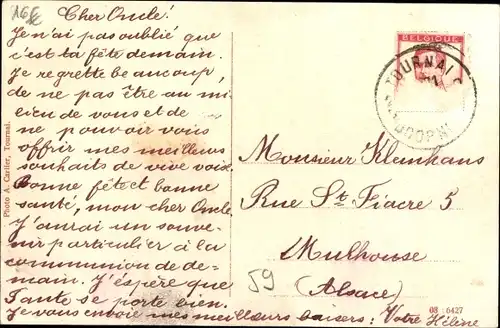 Cher Oncle!
Je n'ai pas oublié que
c'est ta fête demain.
Je regrette beaucoup,
de ne pas être au mi-
lieu de vous et de
ne pouvoir vous
offrir mes meilleurs
souhaits de vive voix.
Bonne fête et bonne
santé, mon cher Oncle.
J'aurai un souve-
nir particulier à la
communion de de-
main. J'éspère que
Tante se porte bien.
Je vous envoie mes meilleurs baisers: Votre Hélène
Photo A. Carlier, Tournai.
BELGIQUE
TOURNAI
DOORNIK
Monsieur Kleinhans
Rue St Fiacre 5
Mulhouse
(Alsace)
59
08 6427